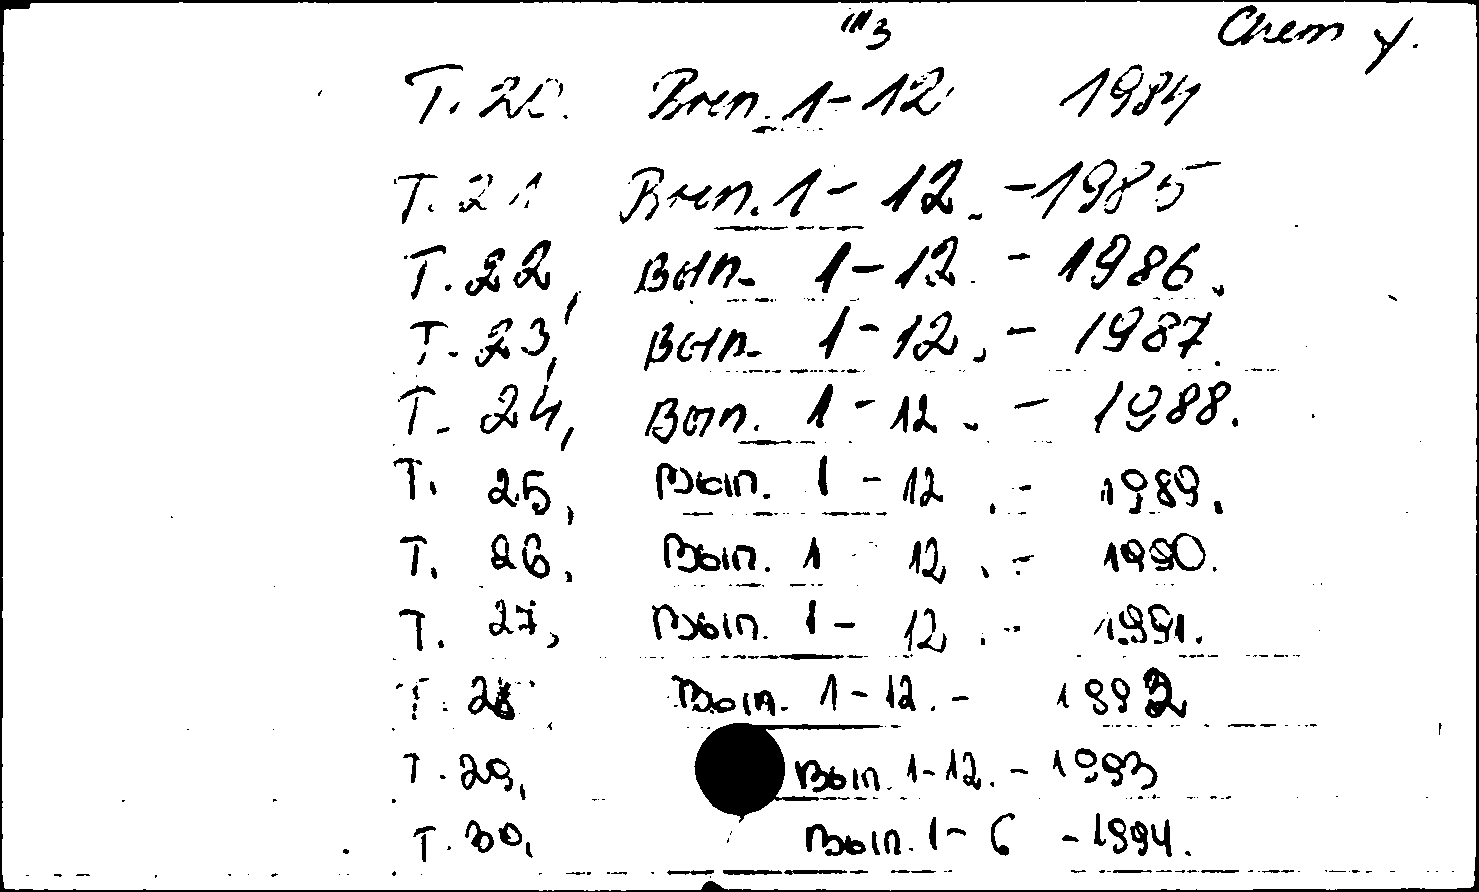 III 3 Chem y.
Т. 20. Вып. 1-12 1984
Т. 21 Вып. 1- 12. -1985
Т. 22, Вып. 1-12 - 1986.
Т. 23, Вып. 1-12. - 1987.
Т. 24, Вып. 1-12. - 1988.
Т. 25, Вып. 1 - 12. - 1989.
Т. 26, Вып. 1 12. - 1990.
Т. 27, Вып. 1 - 12. - 1991.
Т. 28 Вып. 1-12. - 1992
Т. 29, Вып. 1-12. - 1993
Т. 30, Вып. 1- 6 - 1994.